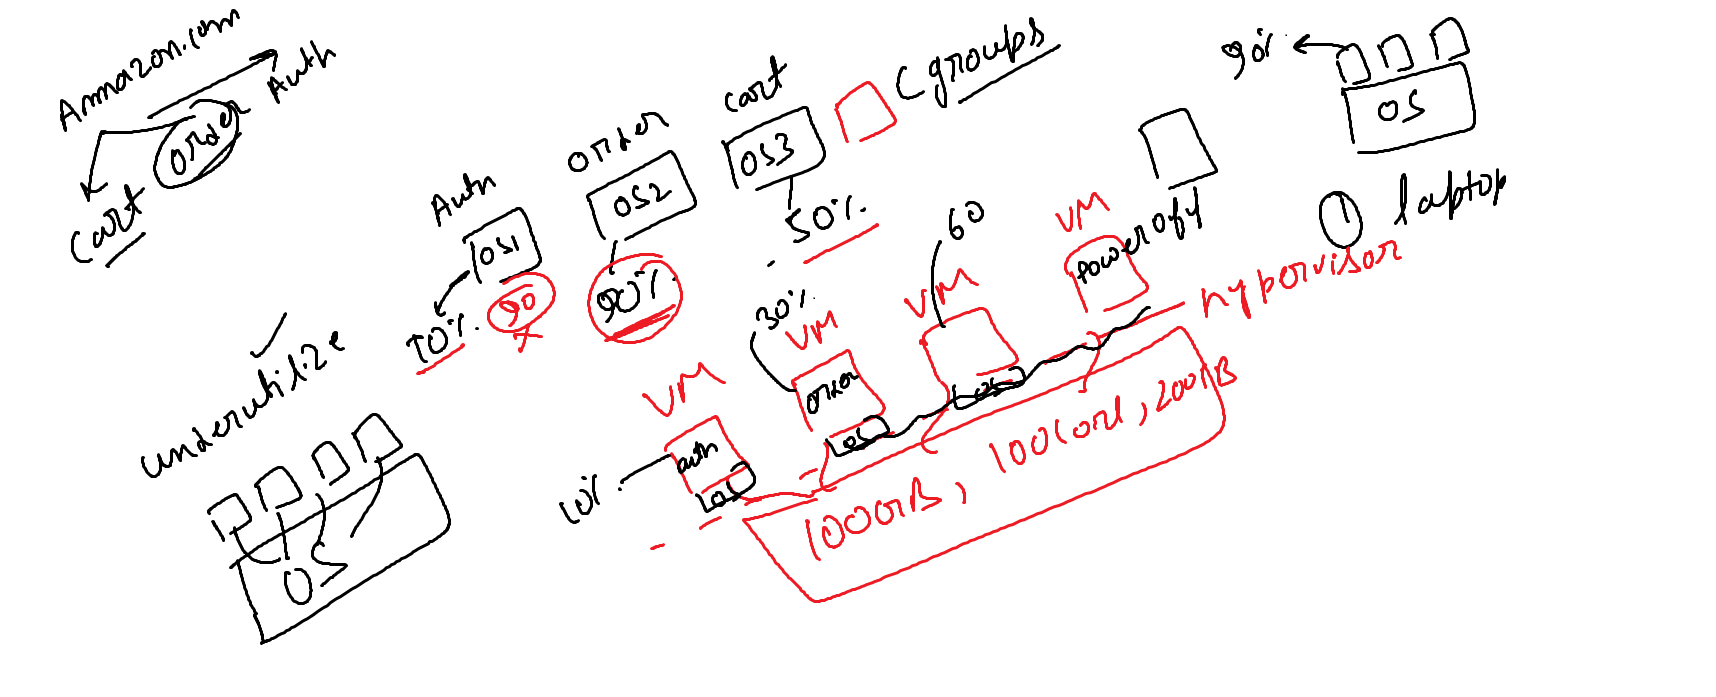 Amazon.com
Auth
order
Cart
Auth
OS1
10%.
90
order
OS2
90%.
cart
OS3
50%.
Cgroups
90%
OS
laptop
underutilize
OS
VM
auth
OS
10%.
VM
order
OS
30%.
VM
OS
60
VM
poweroff
hypervisor